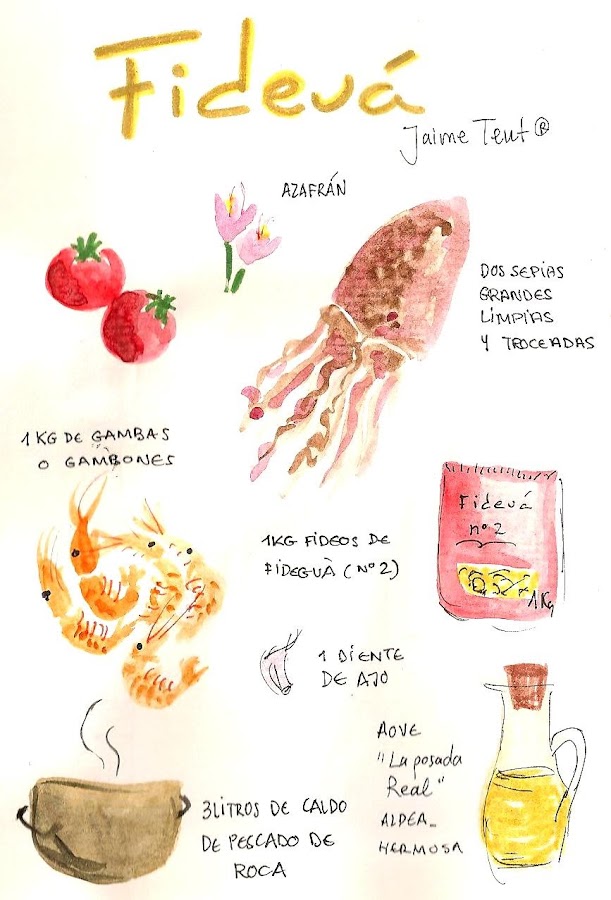 Fidevá
Jaime Teut ®
AZAFRÁN
DOS SEPIAS
GRANDES
LIMPIAS
Y TROCEADAS
1 KG DE GAMBAS
O GAMBONES
Fidevá
nº 2
1 Kg
1KG FIDEOS DE
FIDEGUÀ (Nº2)
1 DIENTE
DE AJO
AOVE
"La posada
Real"
ALDEA_
HERMOSA
3 LITROS DE CALDO
DE PESCADO DE
ROCA